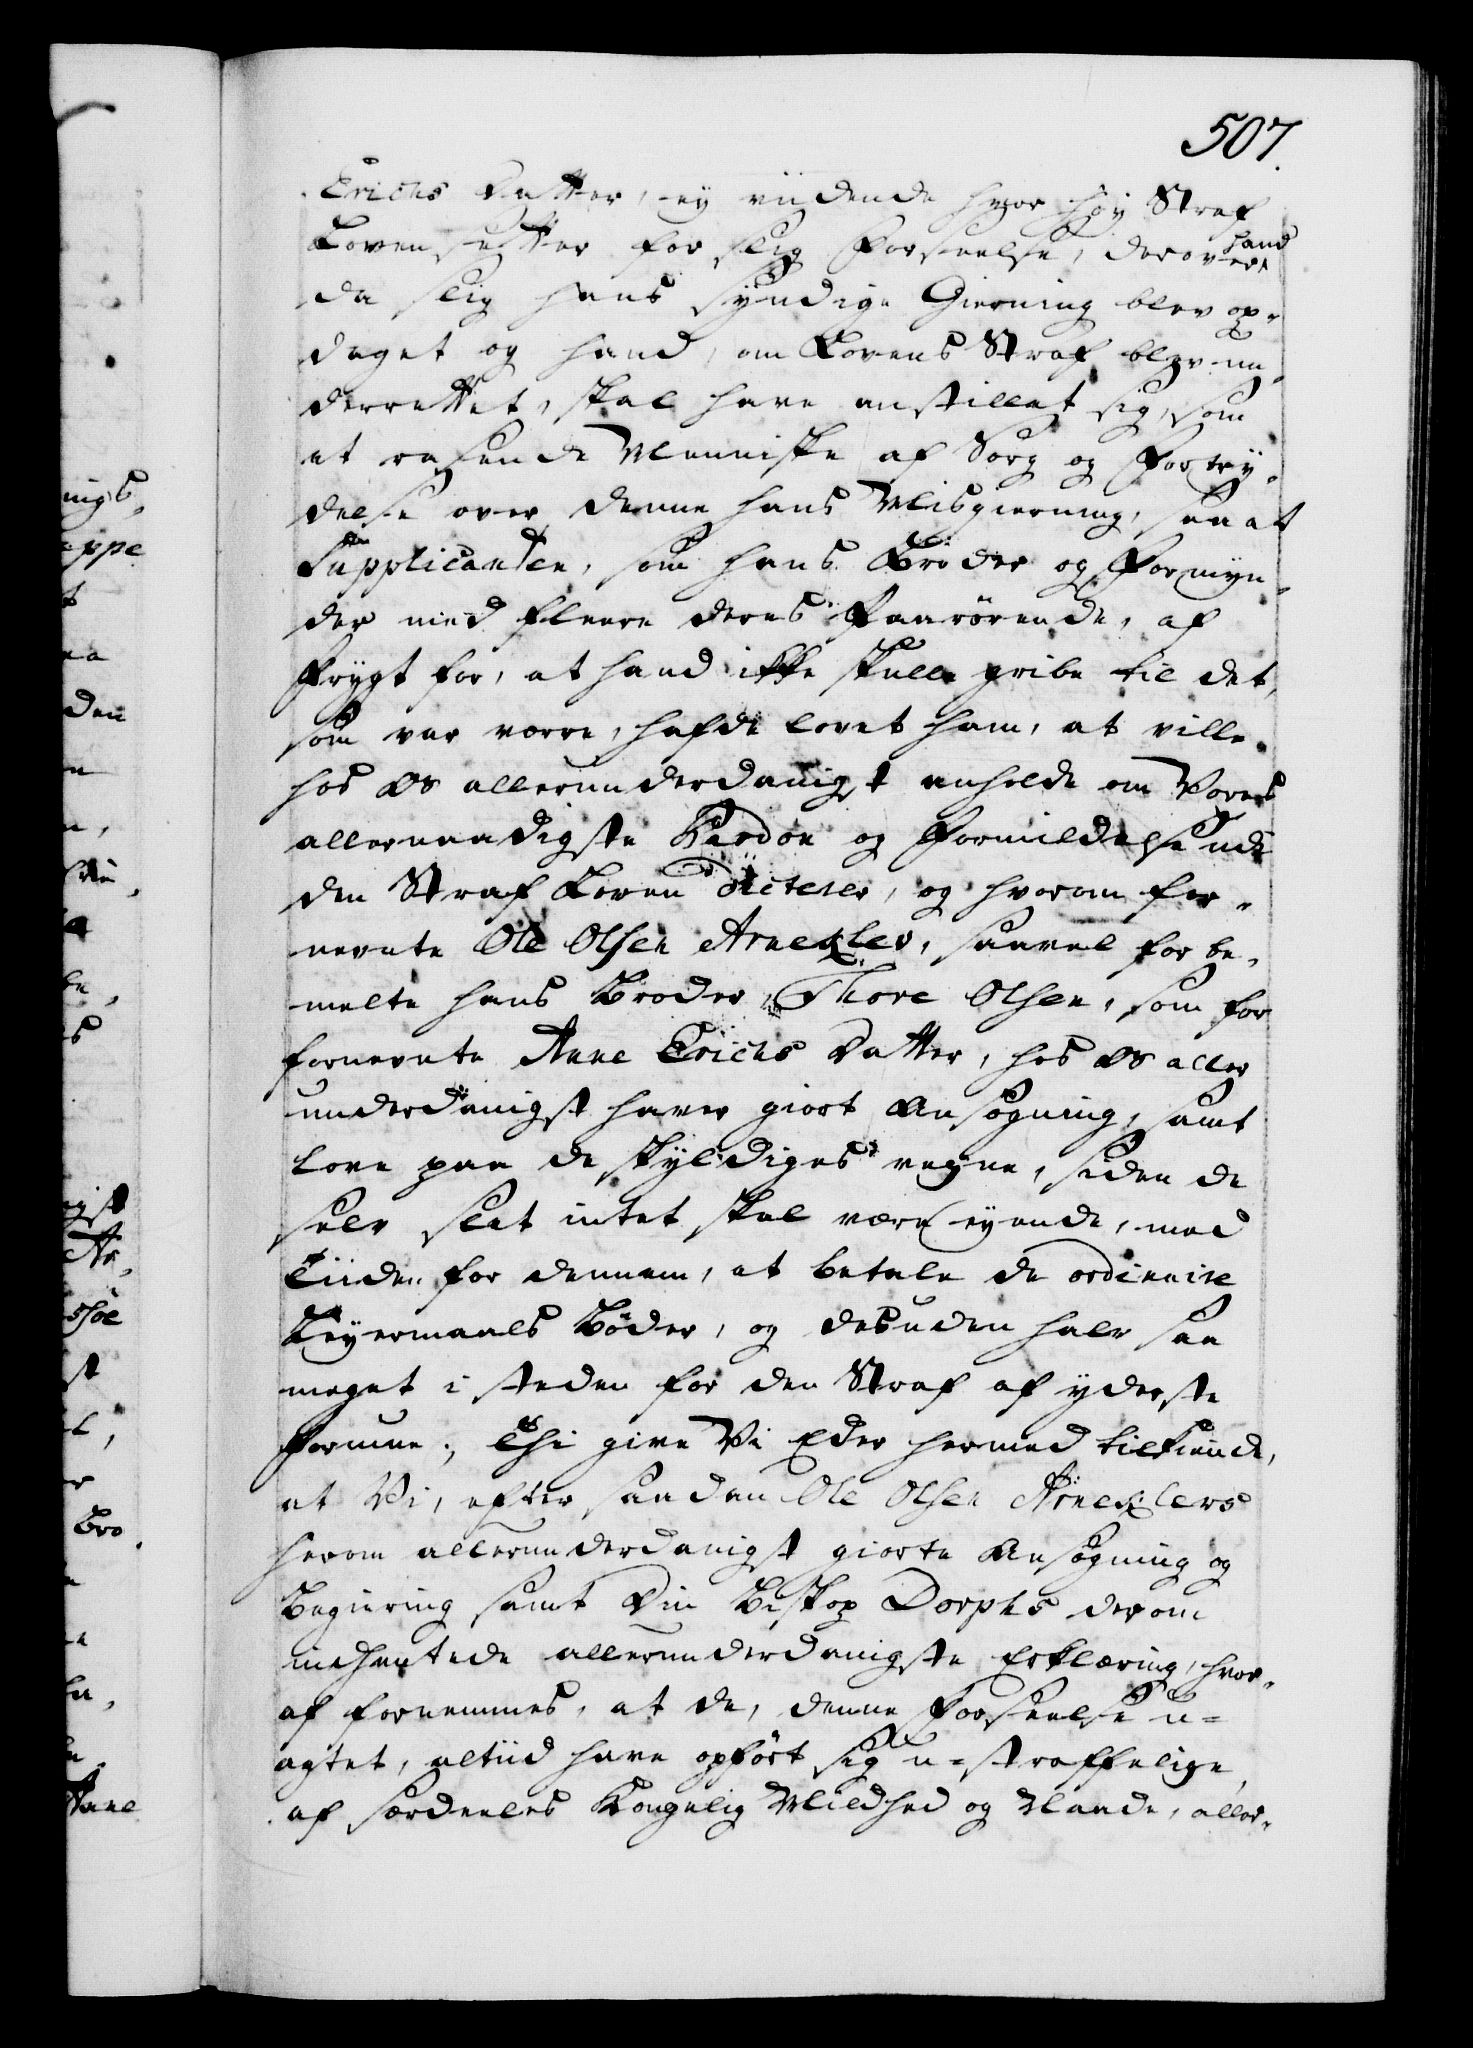 507.
Erichs Datter, ey viidende hvor høy Straf
Loven sætter for slig Forseelse, derover hand
da slig hans syndige Gierning blev op-
daget og hand, om Lovens Straf blev un-
derrettet, skal have anstillet sig, som
et rasende Menniske af Sorg og Fortry-
delse over denne hans Misgierning, saa at
Supplicanten, som hans Broder og Formyn-
der med fleere deres Paarørende, af
Frygt for, at hand ikke skulle gribe til det,
som var værre, hafde lovet ham, at ville
hos os allerunderdanigst anholde om Vores
allernaadigste Pardon og Formildelse udi
den Straf Loven dicterer, og hvorom for-
nevnte Ole Olsen Arnexlev, saavel for be-
melte hans Broder, Thore Olsen, som for
fornevnte Anne Erichs Datter, hos os aller
underdanigst haver giort Ansøgning, samt
love paa de skyldiges vegne, siden de
selv slet intet skal være eyende, med
Tiiden for dennem, at betale de ordinaire
Leyermaals Bøder, og desuden halv saa
meget i steden for den Straf af yderste
Formue; Thi give Vi Eder hermed tilkiende,
at Vi, efter saadan Ole Olsen Arnexlevs
herom allerunderdanigst giorte Ansøgning og
Begiering samt Din Biskop Dorphs derom
indhentede allerunderdanigste Erklæring, hvor-
af fornemmes, at de, denne Forseelse u-
agtet, altiid have opført sig u-straffelige,
af særdeeles Kongelig Mildhed og Naade, aller-